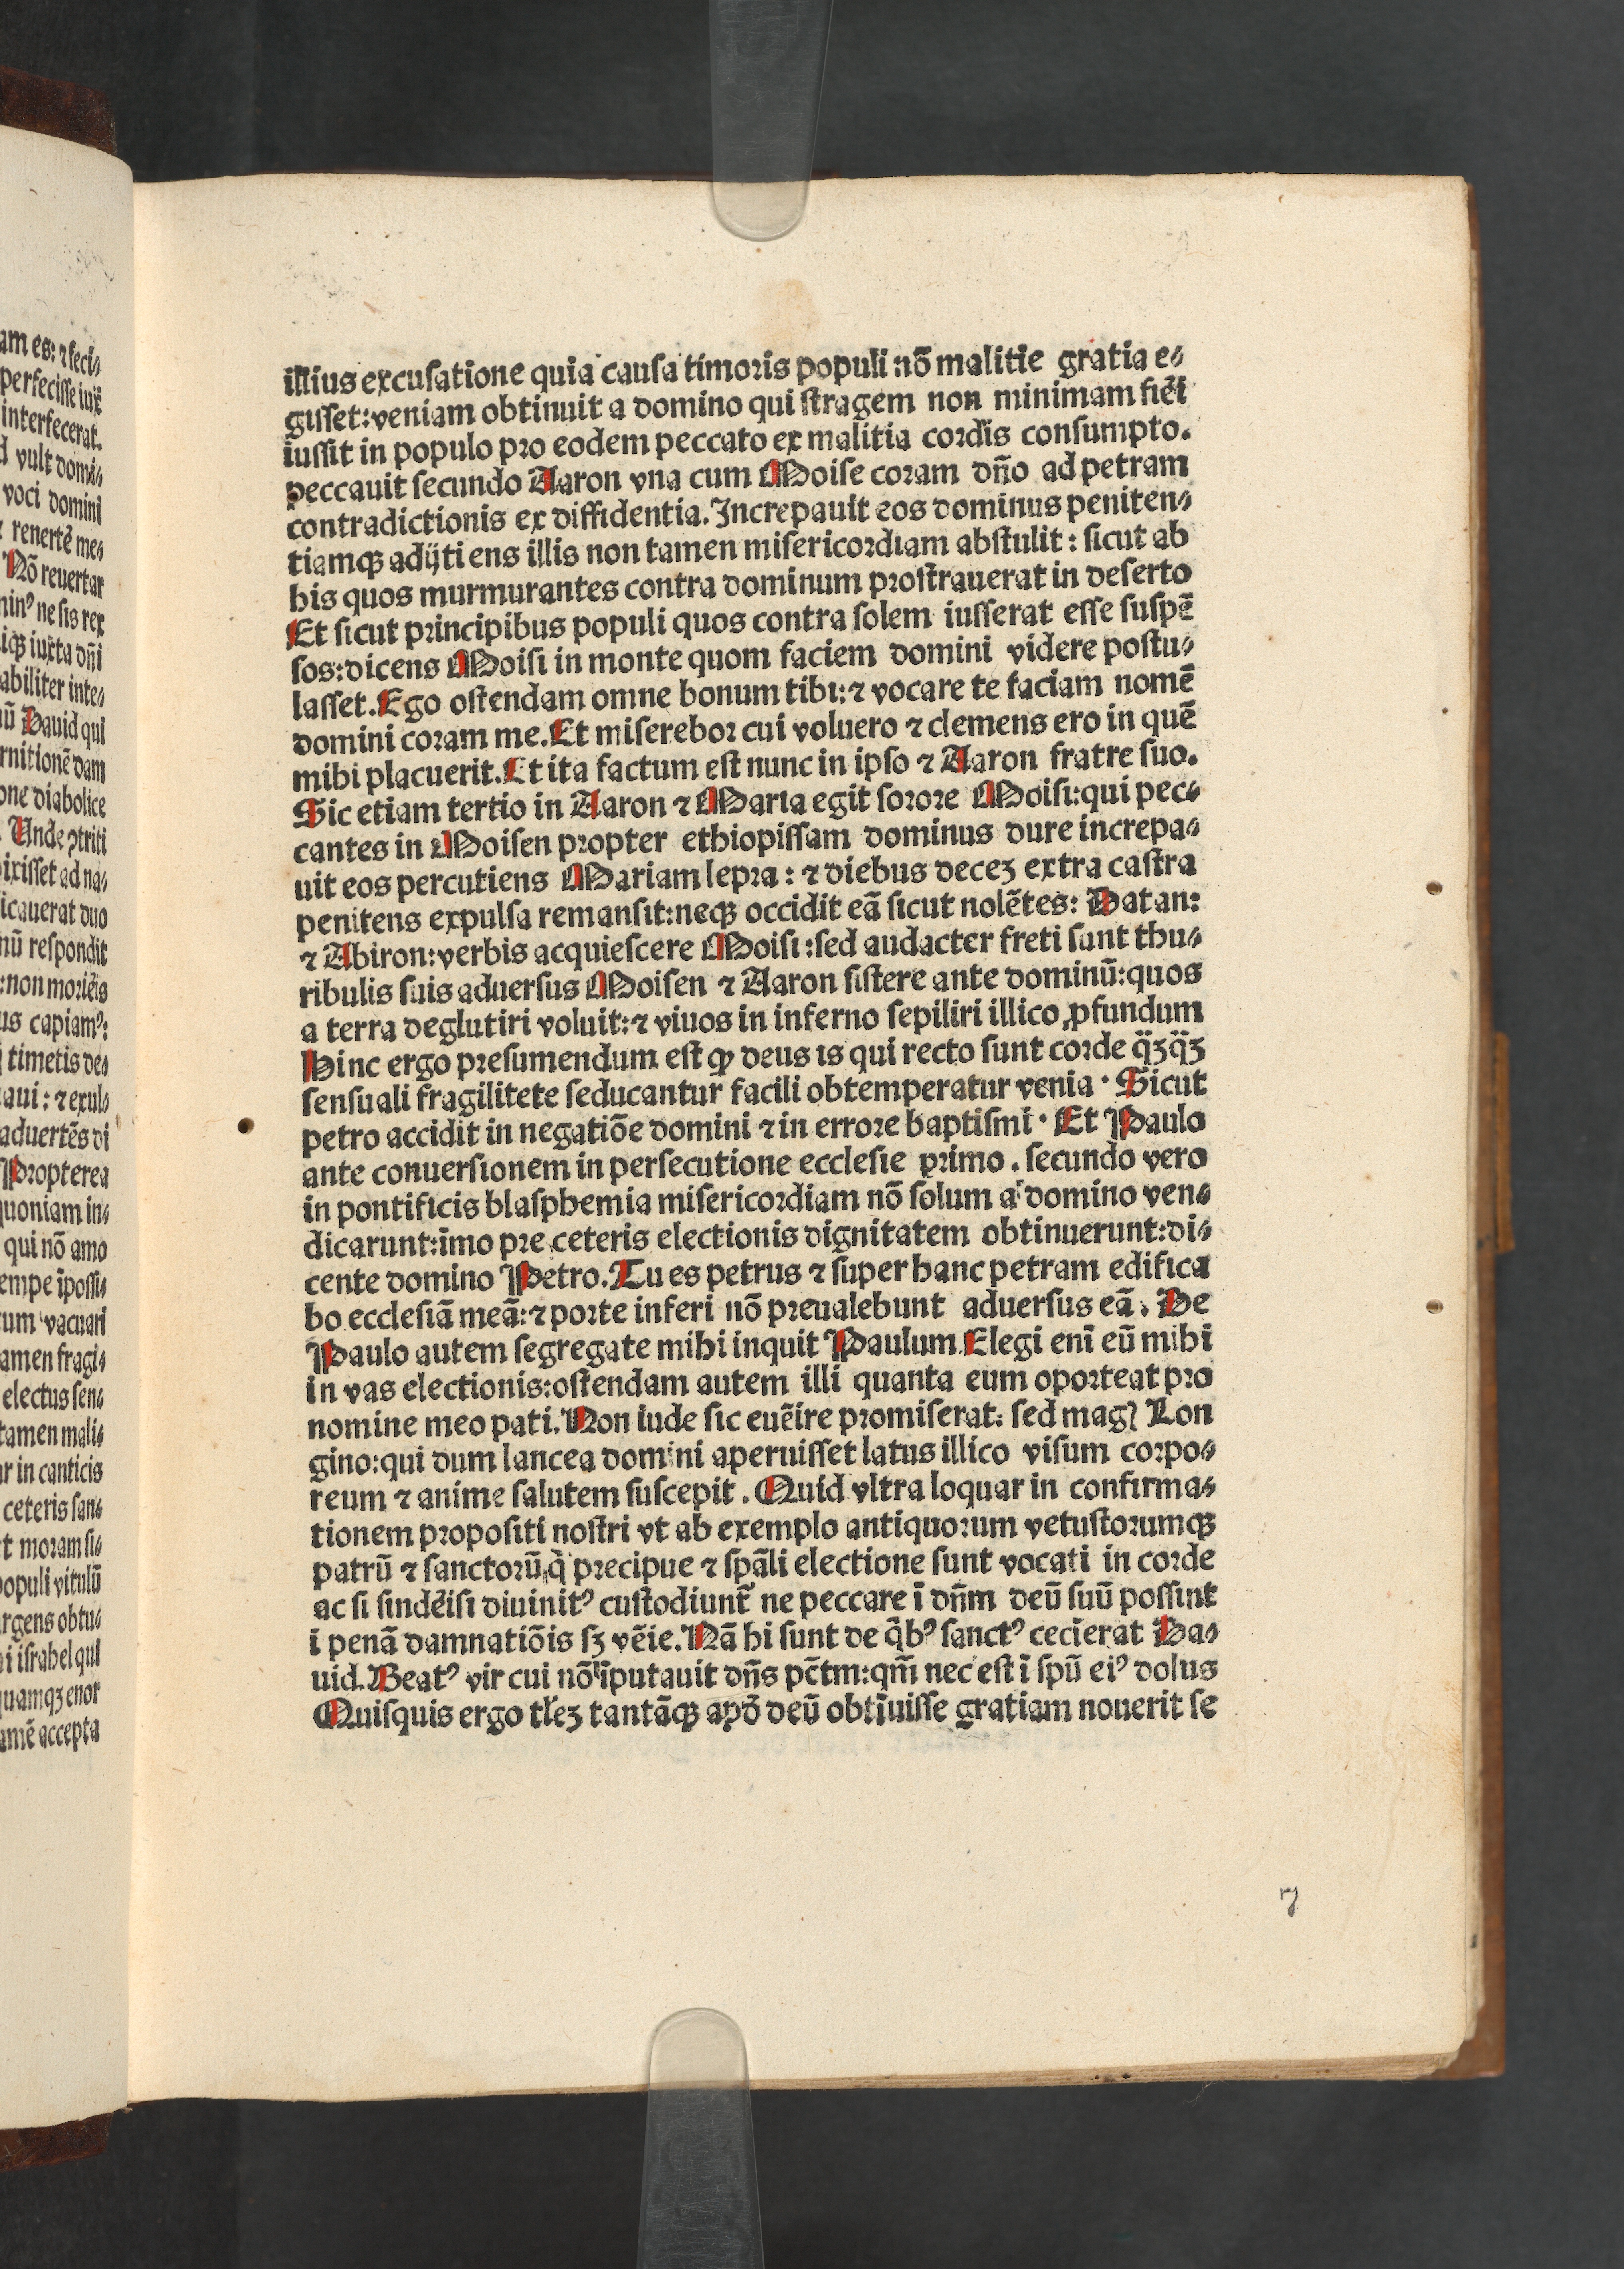 am es: ⁊ feci⸗
perfecisse iux̄
interfecerat.
d vult domi⸗
voci domini
renertē me⸗
Nō reuertar
nin⁹ ne sis rex
iqꝫ iuxta dn̄i
abiliter inte⸗
ū Dauid qui
rnitionē dam
one diabolice
Unde ꝯtriti
ixisset ad na⸗
icauerat duo
nū respondit
: non moriēis
us capiam⁹:
timetis de⸗
aui: ⁊ exul⸗
aduertēs di
Propterea
quoniam in⸗
qui nō amo
empe īpossi⸗
um vacuari
amen fragi⸗
electus sen⸗
tamen mali⸗
r in canticis
ceteris san⸗
t moram si⸗
populi vitulū
rgens obtu⸗
i israhel qui
uamqꝫ enor
amē accepta
illius excusatione quia causa timoris populi nō malitie gratia e⸗
gisset: veniam obtinuit a domino qui stragem non minimam fiēi
iussit in populo pro eodem peccato ex malitia cordis consumpto.
peccauit secundo Aaron vna cum Moise coram dn̄o ad petram
contradictionis ex diffidentia. Increpauit eos dominus peniten⸗
tiamqꝫ adijti ens illis non tamen misericordiam abstulit: sicut ab
his quos murmurantes contra dominum prostrauerat in deserto
Et sicut principibus populi quos contra solem iusserat esse suspē
sos: dicens Moisi in monte quom faciem domini videre postu⸗
lasset. Ego ostendam omne bonum tibi: ⁊ vocare te faciam nomē
domini coram me. Et miserebor cui voluero ⁊ clemens ero in quē
mihi placuerit. Et ita factum est nunc in ipso ⁊ Aaron fratre suo.
Sic etiam tertio in Aaron ⁊ Maria egit sorore Moisi: qui pec⸗
cantes in Moisen propter ethiopissam dominus dure increpa⸗
uit eos percutiens Mariam lepra: ⁊ diebus deceꝫ extra castra
penitens expulsa remansit: neqꝫ occidit eā sicut nolētes: Datan:
⁊ Abiron: verbis acquiescere Moisi: sed audacter freti sunt thu⸗
ribulis suis aduersus Moisen ⁊ Aaron sistere ante dominū: quos
a terra deglutiri voluit: ⁊ viuos in inferno sepiliri illico ꝓfundum
Hinc ergo presumendum est ꝙ deus is qui recto sunt corde q̄ꝫq̄ꝫ
sensuali fragilitete seducantur facili obtemperatur venia · Sicut
petro accidit in negatiōe domini ⁊ in errore baptismi · Et Paulo
ante conuersionem in persecutione ecclesie primo . secundo vero
in pontificis blasphemia misericordiam nō solum a domino ven⸗
dicarunt: īmo pre ceteris electionis dignitatem obtinuerunt: di⸗
cente domino Petro. Tu es petrus ⁊ super hanc petram edifica
bo ecclesiā meā: ⁊ porte inferi nō preualebunt aduersus eā. De
Paulo autem segregate mihi inquit Paulum. Elegi enī eū mihi
in vas electionis: ostendam autem illi quanta eum oporteat pro
nomine meo pati. Non iude sic euēire promiserat: sed magꝭ Lon
gino: qui dum lancea domini aperuisset latus illico visum corpo⸗
reum ⁊ anime salutem suscepit . Quid vltra loquar in confirma⸗
tionem propositi nostri vt ab exemplo antiquorum vetustorumqꝫ
patrū ⁊ sanctorū q̄ precipue ⁊ spāli electione sunt vocati in corde
ac si sindēisi diuinit⁹ custodiunt̄ ne peccare ī dn̄m deū suū possint
i penā damnatiōis sꝫ vēie. Nā hi sunt de q̄b⁹ sanct⁹ cecīerat Da⸗
uid. Beat⁹ vir cui nō īputauit dn̄s pc̄tm: qm̄ nec est ī spū ei⁹ dolus
Quisquis ergo tl̄eꝫ tantāqꝫ apd̄ deū obtīuisse gratiam nouerit se